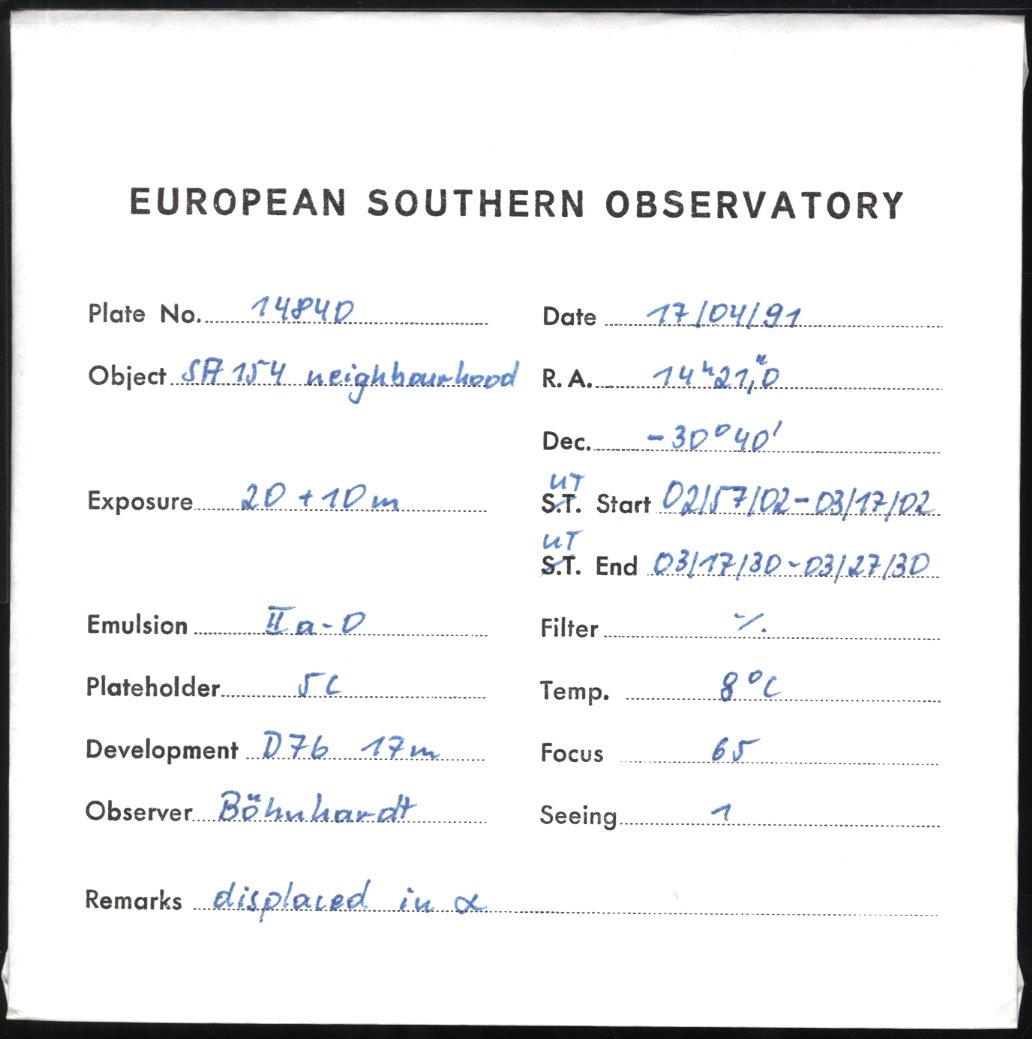 EUROPEAN SOUTHERN OBSERVATORY
Plate No. 14840
Date 17/04/91
Object SA 154 neighbourhood
R.A. 14ʰ21,ᵐ0
Dec. -30°40'
Exposure 20 + 10m
UT
S.T. Start 02/57/02-03/17/02
UT
S.T. End 03/17/30-03/27/30
Emulsion IIa-O
Filter ·/.
Plateholder 5C
Temp. 8°C
Development D76 17m
Focus 65
Observer Böhnhardt
Seeing 1
Remarks displaced in α